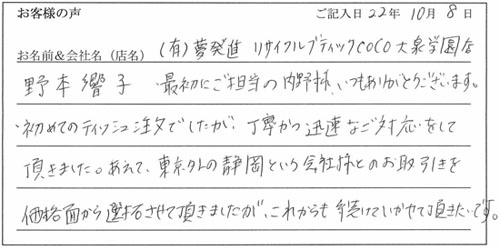 お客様の声 ご記入日22年10月8日
お名前&会社名（店名） (有)夢発進 リサイクルブティックCOCO大泉学園店
野本響子 最初にご担当の内野様、いつもありがとうございます。
初めてのティッシュ注文でしたが、丁寧かつ迅速なご対応をして
頂きました。あえて、東京外の静岡という会社様とのお取引きを
価格面から選抜させて頂きましたが、これからも続けていかせて頂きたいです。